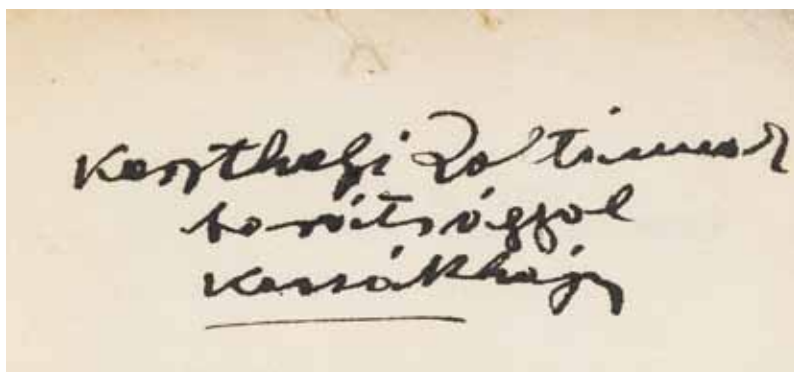 Keszthelyi Zoltánnak
barátsággal
Kassák Lajos